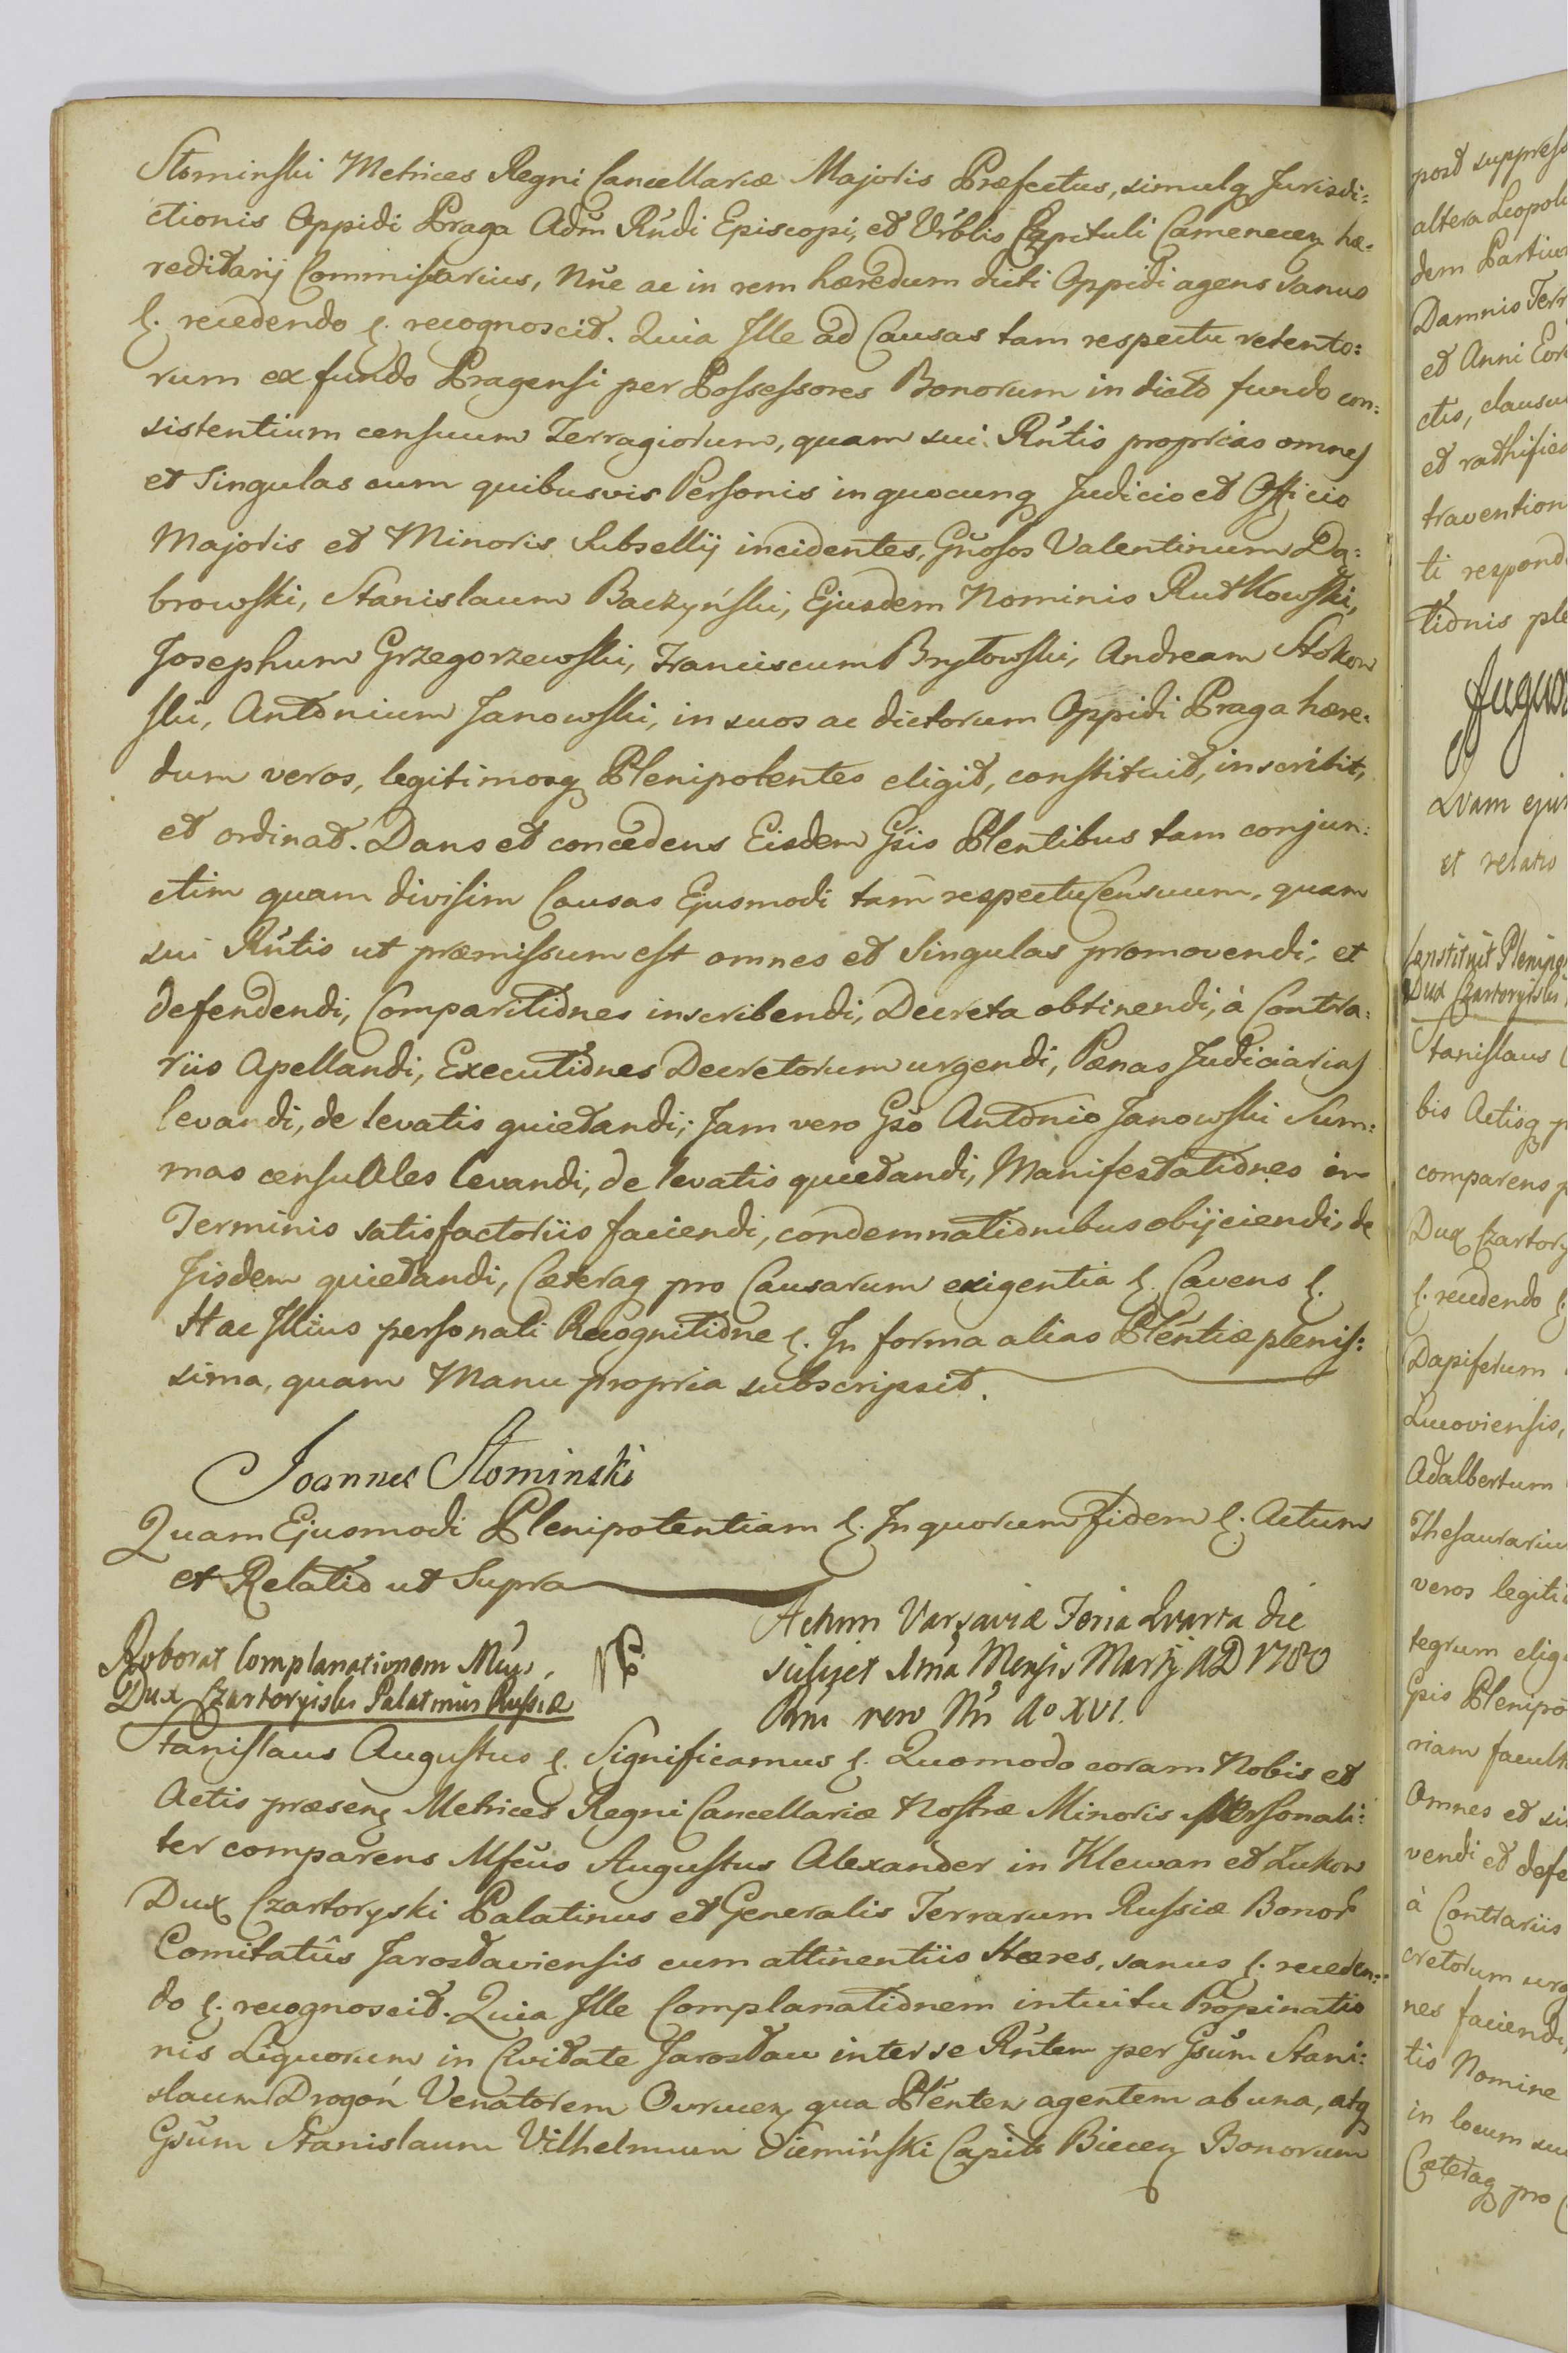 Słominski Metrices Regni Cancellariæ Majoris Præfectus, simulq Jurisdi:
ctionis Oppidi Praga Adm̃ Rńdi Episcopi, et Vrblis Capituli Camenecen hæ:
reditarij Commissarius, Nñe ac in rem hæredum dicti Oppidi agens sanus
&. recedendo &. recognoscit. Quia Ille ad Causas tam respectu retento:
rum ex fundo Pragensi per Possessores Bonorum in dicto fundo con:
sistentium censuum Terragiorum, quam sui Rńtis proprias omnes
et Singulas cum quibusvis Personis in quocunq Judicio et Officio
Majoris et Minoris Subsellij incidentes, Gńosos Valentinum Dą:
browski, Stanislaum Baczyński, Ejusdem Nominis Rutkowski,
Josephum Grzegorzewski, Franciscum Brytowski, Andream Stokow
ski, Antonium Janowski, in suos ac dictorum Oppidi Praga hære:
dum veros, legitimosq Plenipotentes eligit, constituit, inscribit,
et ordinat. Dans et concedens Eisdem Gsis Plentibus tam conjun:
ctim quam divisim Causas Ejusmodi tam respectu Censuum, quam
sui Rńtis ut præmissum est omnes et Singulas promovendi, et
defendendi, Comparitiones inscribendi, Decreta obtinendi, à Contra:
riis Apellandi, Executiones Decretorum urgendi, Pænas Judiciarias
levandi, de levatis quietandi; Jam vero Gso Antonio Janowski Sum:
mas censuales levandi, de levatis quietandi, Manifestationes in
Terminis satisfactoriis faciendi, condemnationibus obijciendi, de
Jisdem quietandi, Cæteraq pro Causarum exigentia &. Cavens &.
Hac Illius personali Recognitione &. In forma alias Pleńtiæ plenis:
sima, quam Manu propria subscripsit.
Joannes Słominski
Quam Ejusmodi Plenipotentiam &. In quorum Fidem &. Actum
et Relatio ut Supra
Actum Varsaviæ Feria Quarta die
scilicet 1ma Mensis Martij AD 1780
Rni vero Nri Ao XVI.
Roborat Complanationem
Dux Czartoryiski Palatinus Russiæ
Stanislaus Augustus &. Significamus &. Quomodo coram Nobis et
Actis præsen Metrices Regni Cancellariæ Nostræ Minoris personali:
ter comparens Mfcus Augustus Alexander in Klewan et Zukow
Dux Czartoryski Palatinus et Generalis Terrarum Russiæ Bonor
Comitatûs Jarosłaviensis cum attinentiis Hæres, sanus &. receden:
do &. recognoscit. Quia Ille Complanationem intuitu Propinatio
nis Liquorum in Civitate Jarosław inter se Rńtem per Gsum Stani:
slaum Drogoń Venatorem Owrucen qua Plenten agentem ab una, atq
Gsum Stanislaum Vilhelmum Siemiński Capit Biecen Bonorum
post suppress
altera Leopol
dem Partiu
Damnis Terr
et Anni
ctis, clausu
et rathific
travention
ti respond
tionis ple
Quam ejus
et relatio
Constituit Plenipo
Dux Czartoryiski
Stanislaus
bis Actisq
comparens p
Dux Czartory
&. recedendo &.
Dapiferum
Lucoviensis,
Adalbertum
Thesaurariu
veros legiti
tegrum elig
Gsis Plenipo
riam facult
Omnes et si
vendi et defe
à Contrariis
cretorum urg
nes faciendi,
tis Nomine
in locum su
Cæteraq pro